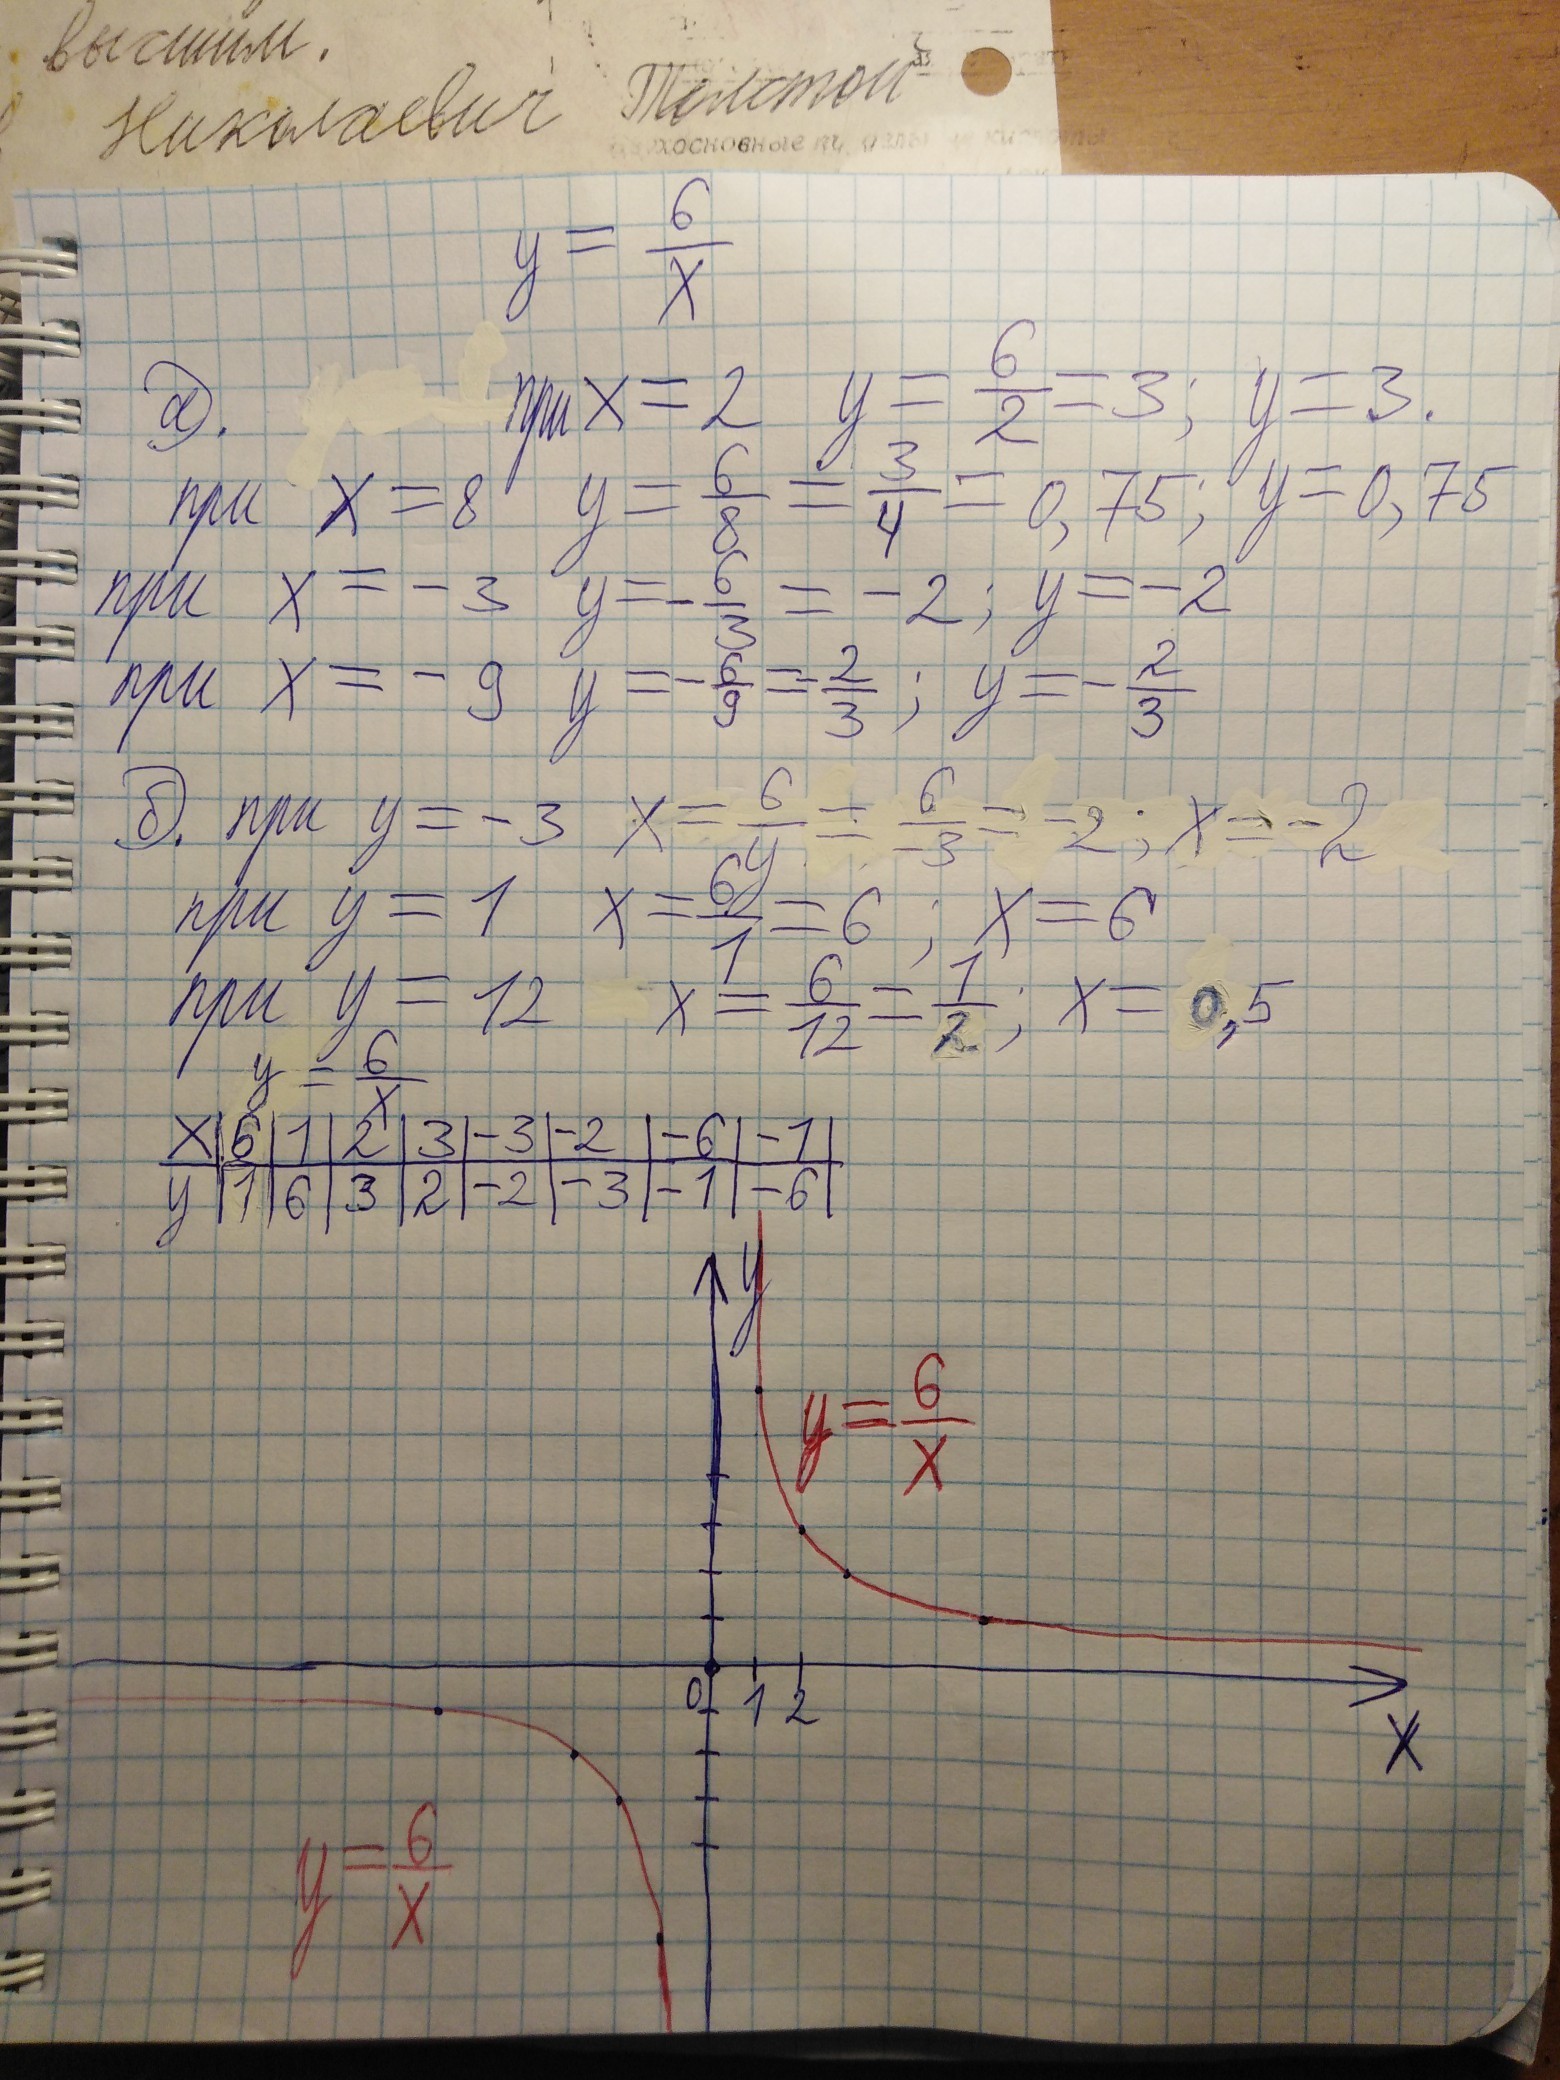 высшим.
Николаевич Толстой
y = 6/x
а). при x = 2 y = 6/2 = 3; y = 3.
при x = 8 y = 6/8 = 3/4 = 0,75; y = 0,75
при x = -3 y = -6/3 = -2; y = -2
при x = -9 y = -6/9 = -2/3; y = -2/3
б). при y = -3 x = 6/y = 6/-3 = -2; x = -2
при y = 1 x = 6/1 = 6; x = 6
при y = 12 x = 6/12 = 1/2; x = 0,5
y = 6/x
x | 6 | 1 | 2 | 3 | -3 | -2 | -6 | -1 |
y | 1 | 6 | 3 | 2 | -2 | -3 | -1 | -6 |
y
y = 6/x
0 1 2
x
y = 6/x